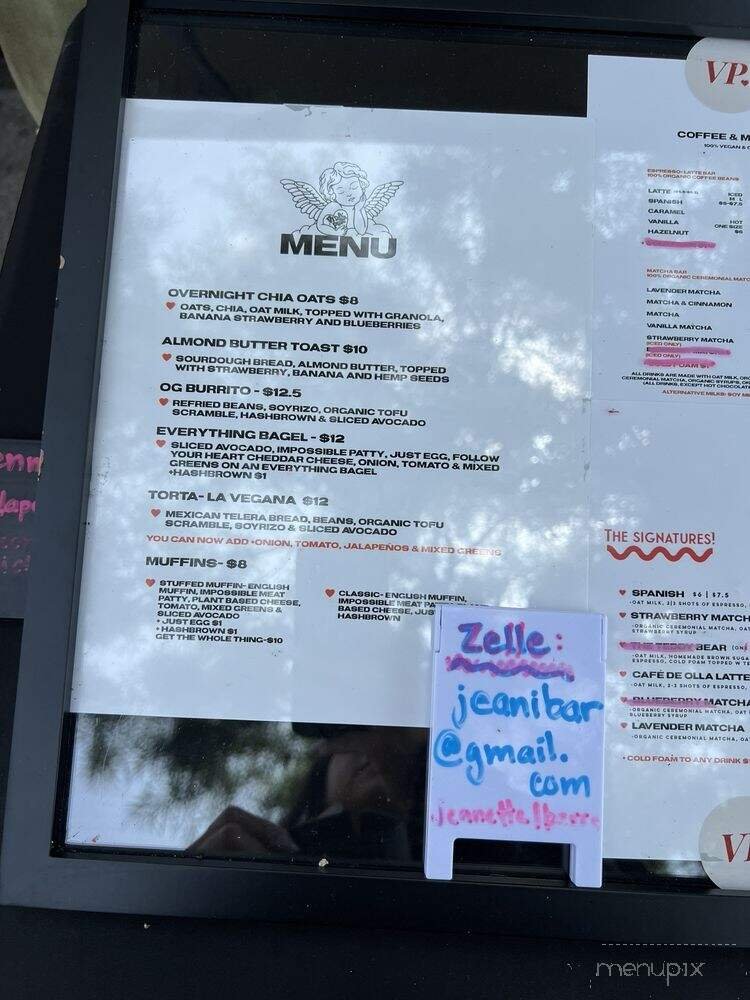 MENU
OVERNIGHT CHIA OATS $8
OATS, CHIA, OAT MILK, TOPPED WITH GRANOLA,
BANANA STRAWBERRY AND BLUEBERRIES
ALMOND BUTTER TOAST $10
SOURDOUGH BREAD, ALMOND BUTTER, TOPPED
WITH STRAWBERRY, BANANA AND HEMP SEEDS
OG BURRITO - $12.5
REFRIED BEANS, SOYRIZO, ORGANIC TOFU
SCRAMBLE, HASHBROWN & SLICED AVOCADO
EVERYTHING BAGEL - $12
SLICED AVOCADO, IMPOSSIBLE PATTY, JUST EGG, FOLLOW
YOUR HEART CHEDDAR CHEESE, ONION, TOMATO & MIXED
GREENS ON AN EVERYTHING BAGEL
+HASHBROWN $1
TORTA- LA VEGANA $12
MEXICAN TELERA BREAD, BEANS, ORGANIC TOFU
SCRAMBLE, SOYRIZO & SLICED AVOCADO
YOU CAN NOW ADD +ONION, TOMATO, JALAPEÑOS & MIXED GREENS
MUFFINS- $8
STUFFED MUFFIN- ENGLISH
MUFFIN, IMPOSSIBLE MEAT
PATTY, PLANT BASED CHEESE,
TOMATO, MIXED GREENS &
SLICED AVOCADO
+ JUST EGG $1
+ HASHBROWN $1
GET THE WHOLE THING-$10
CLASSIC- ENGLISH MUFFIN,
IMPOSSIBLE MEAT
BASED CHEESE,
HASHBROWN
Zelle:
jeanibar
@gmail.
com
VP.
COFFEE & M
100% VEGAN &
ESPRESSO- LATTE BAR
100% ORGANIC COFFEE BEANS
LATTE
ICED
M L
SPANISH
$6-$7.5
CARAMEL
VANILLA
HOT
ONE SIZE
HAZELNUT
$6
MATCHA BAR
100% ORGANIC CEREMONIAL MATC
LAVENDER MATCHA
MATCHA & CINNAMON
MATCHA
VANILLA MATCHA
STRAWBERRY MATCHA
(ICED ONLY)
(ICED ONLY)
ALL DRINKS ARE MADE WITH OAT MILK, ORG
CEREMONIAL MATCHA, ORGANIC SYRUPS, OR
(ALL DRINKS, EXCEPT HOT CHOCOLATE
ALTERNATIVE MILKS: SOY MI
THE SIGNATURES!
SPANISH $6 | $7.5
-OAT MILK, 2|3 SHOTS OF ESPRESSO,
STRAWBERRY MATCH
-ORGANIC CEREMONIAL MATCHA, OAT
STRAWBERRY SYRUP
THE TEDDY BEAR (ON
-OAT MILK, HOMEMADE BROWN SUGA
ESPRESSO, COLD FOAM TOPPED W TE
CAFÉ DE OLLA LATTE
-OAT MILK, 2-3 SHOTS OF ESPRESSO,
BLUEBERRY MATCHA
-ORGANIC CEREMONIAL MATCHA, OAT
BLUEBERRY SYRUP
LAVENDER MATCHA
-ORGANIC CEREMONIAL MATCHA, OAT
+COLD FOAM TO ANY DRINK $
menupix